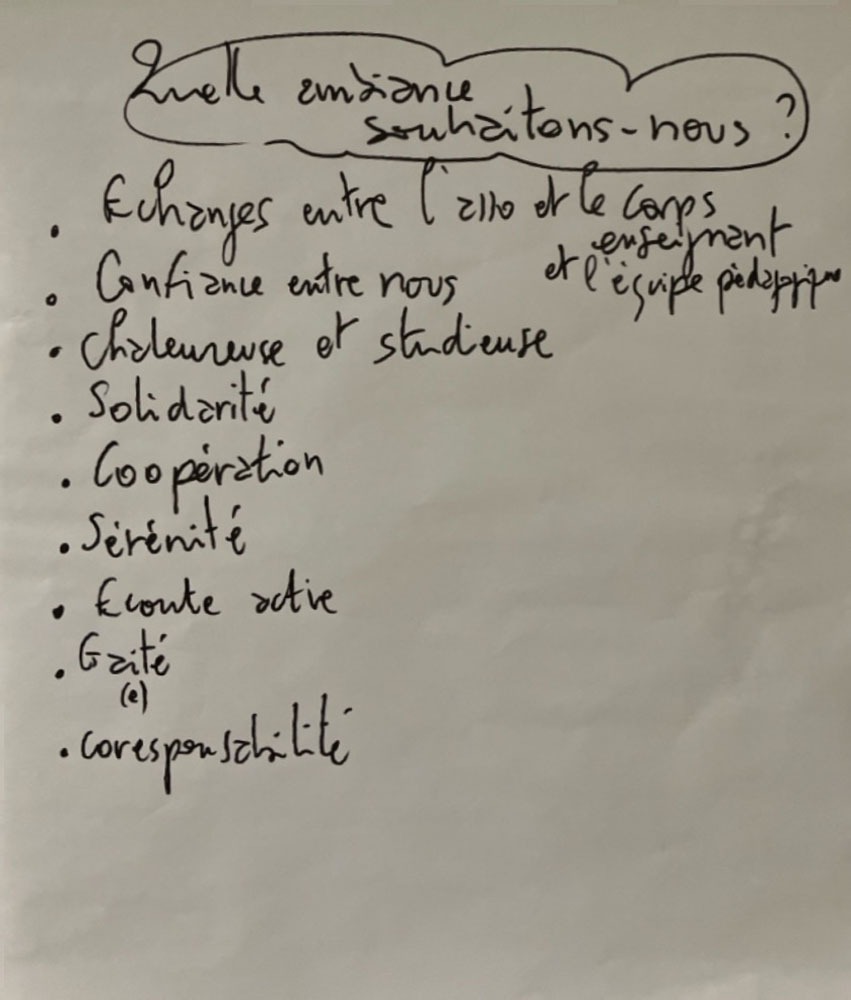 Quelle ambiance
souhaitons-nous ?
. Echanges entre l'asso et le corps
enseignant
et l'équipe pédagogique
. Confiance entre nous
. chaleureuse et studieuse
. Solidarité
. Coopération
. Sérénité
. Ecoute active
. Gaité
(e)
. coresponsabilité